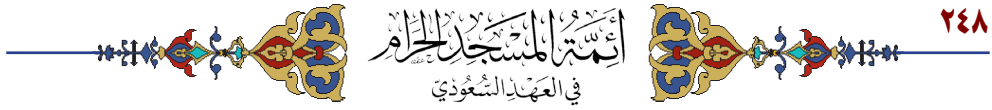 ٢٤٨
أئمة المسجد الحرام
في العهد السعودي